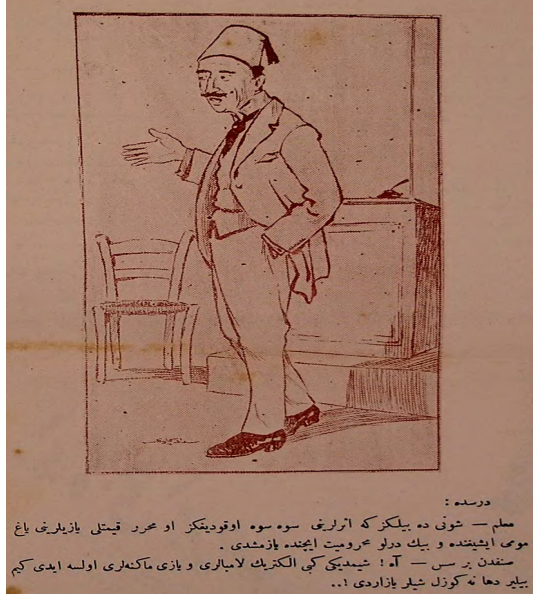 درسده :
معلم — شونی ده بیلکز که اثرلرینی سوه سوه اوقودیغکز او محرر قیمتلی یازیلرینی یاغ
مومی ایشیغنده و بیك درلو محرومیت ایچنده یازمشدی .
صنفدن بر سس — آه ! شیمدیکی کبی الکتریك لامبالری و یازی ماکنه‌لری اولسه ایدی کیم
بیلیر دها نه کوزل شیلر یازاردی !..